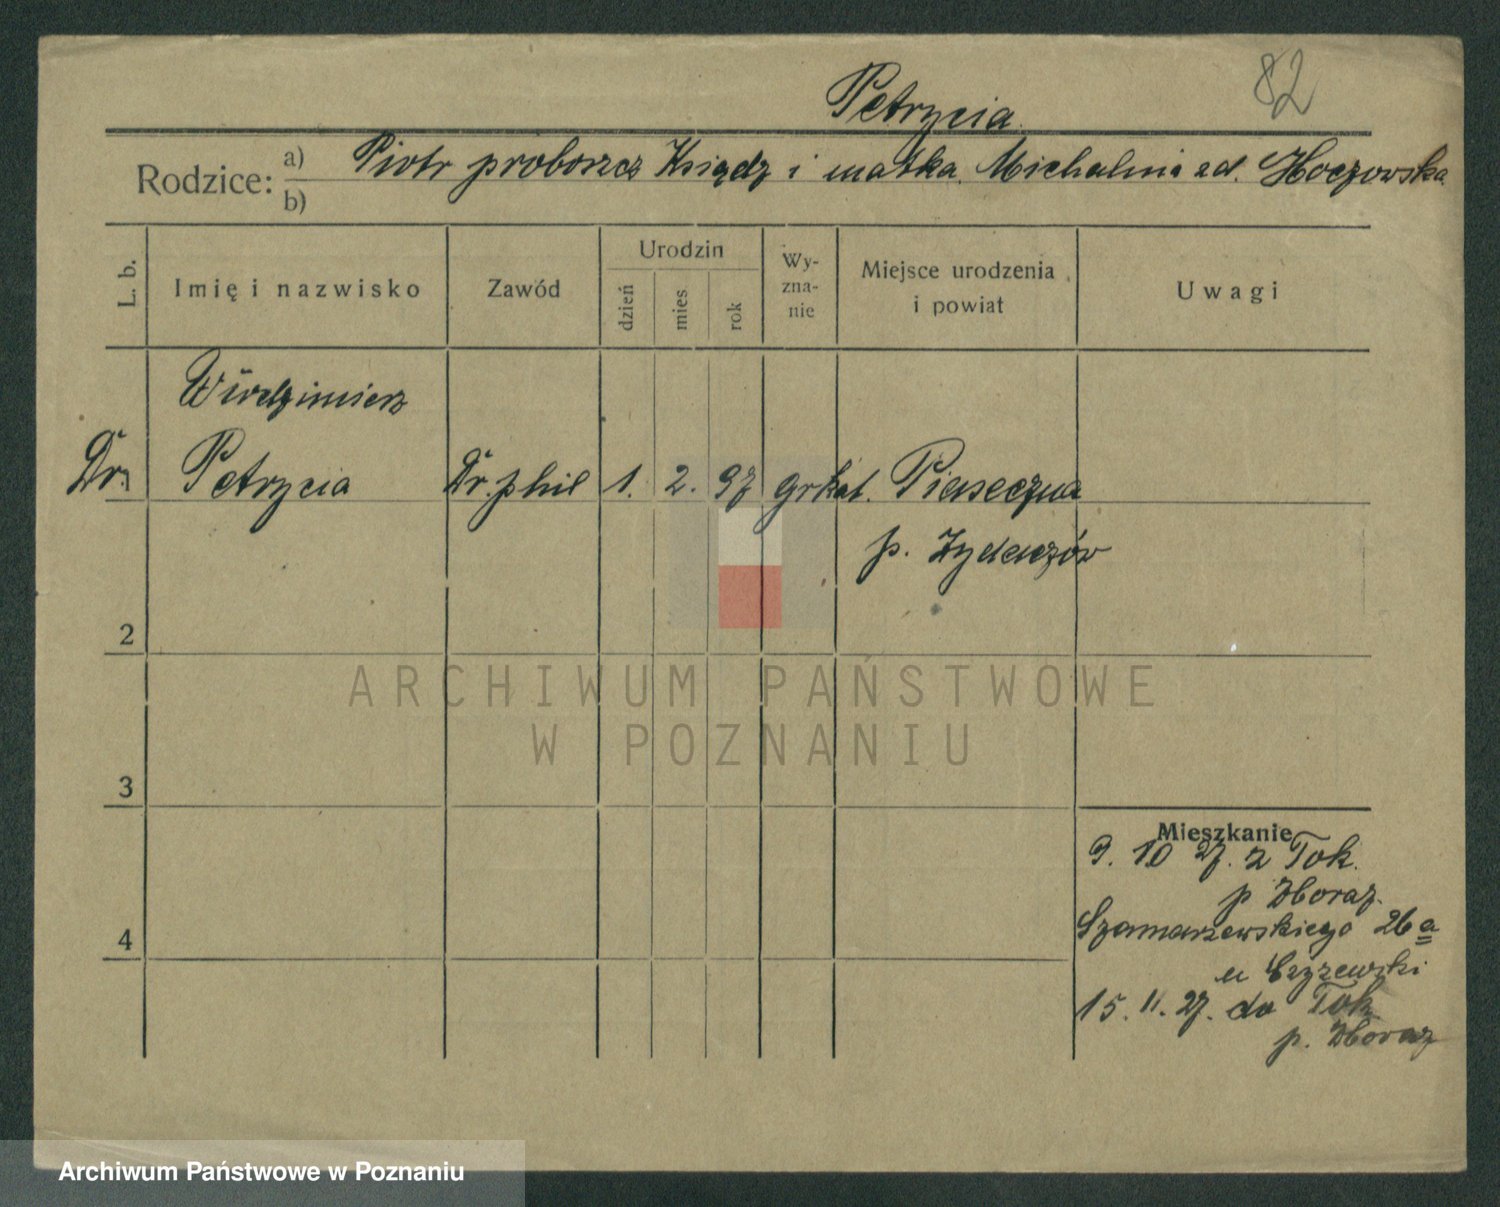 82
Petrycia
Rodzice: a) Piotr proboszcz Ksiądz i matka Michalina zd. Hoczowska
b)
L. b. Imię i nazwisko Zawód Urodzin dzień mies rok Wy-zna-nie Miejsce urodzenia i powiat Uwagi
Włodzimierz
Dr. Petrycia Dr. phil 1. 2. 97 grkat. Piaseczna
p. Żydaczów
2
ARCHIWUM PAŃSTWOWE
W POZNANIU
3
Mieszkanie
9. 10 27. z Tok.
p Zboraz.
4
Szamarzewskiego 26a
u Czyzewski
15. 11. 27. do Tok
p. Zboraz
Archiwum Państwowe w Poznaniu